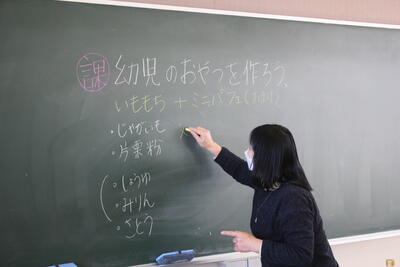 課 幼児のおやつを作ろう、
いももち + ミニパフェ
・じゃがいも
・片栗粉
・しょうゆ
・みりん
・さとう